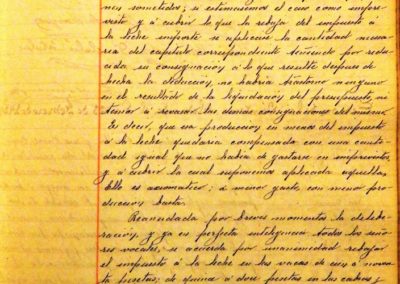 nen sometidos; si estimásemos el caso como impre-
visto y á cubrir lo que la rebaja del impuesto á
la leche importe se aplicase la cantidad necesa-
ria del capítulo correspondiente teniendo por redu-
cida su consignación á lo que resulte despues de
hecha la deducción, no habría trastorno ninguno
en el resultado de la liquidación del presupuesto, ni
tocar á revisar las demas consignaciones del mismo.
Es decir, que su producción en menos del impuesto
á la leche quedaria compensada con una canti-
dad igual que no habia de gastarse en imprevistos,
y á cubrir la cual suponemos aplicada aquella.
Ello es axiomático: á menor gasto, con menor pro-
ducción basta.
Reanudada por breves momentos la delibe-
ración, y ya en perfecta inteligencia todos los seño-
res vocales, se acuerda por unanimidad rebajar
el impuesto á la leche en las vacas de cien á noven-
ta pesetas, de quince á doce pesetas en las cabras y